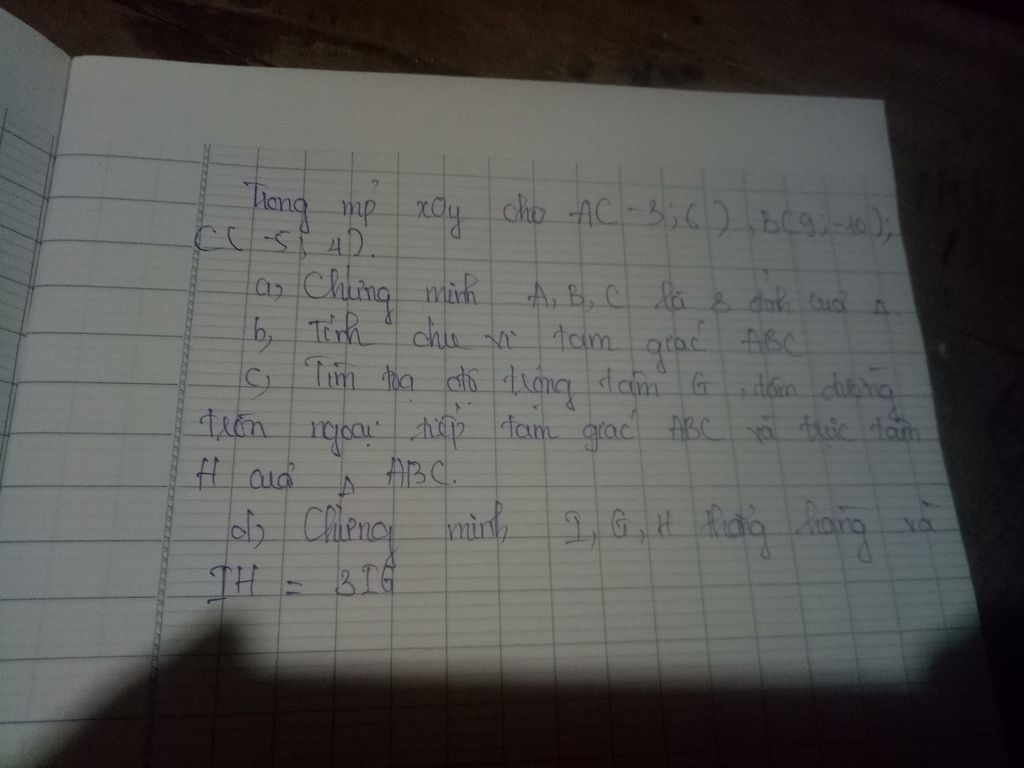 Trong mp xOy cho A(-3;6), B(9;-10),
C(-5; 4).
a, Chứng minh A, B, C là 3 đỉnh của Δ.
b, Tính chu vi tam giác ABC
c, Tìm toạ độ trọng tâm G, tâm đường
tròn ngoại tiếp tam giác ABC và trực tâm
H của Δ ABC.
d, Chứng minh I, G, H thẳng hàng và
IH = 3IG